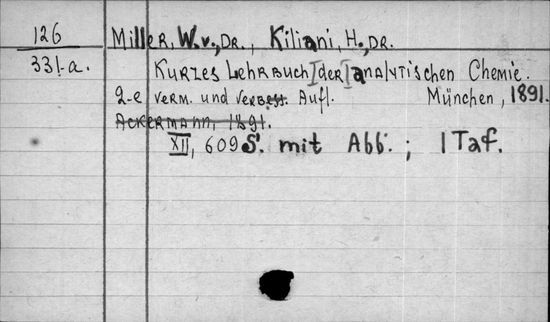 126
331-a.
Miller, W. v., Dr., Kiliani, H., Dr.
Kurzes Lehrbuch [der] analytischen Chemie.
2-e verm. und verbess. Aufl. München, 1891.
Ackermann, 1891.
XII, 609 S. mit Abb.; 1 Taf.